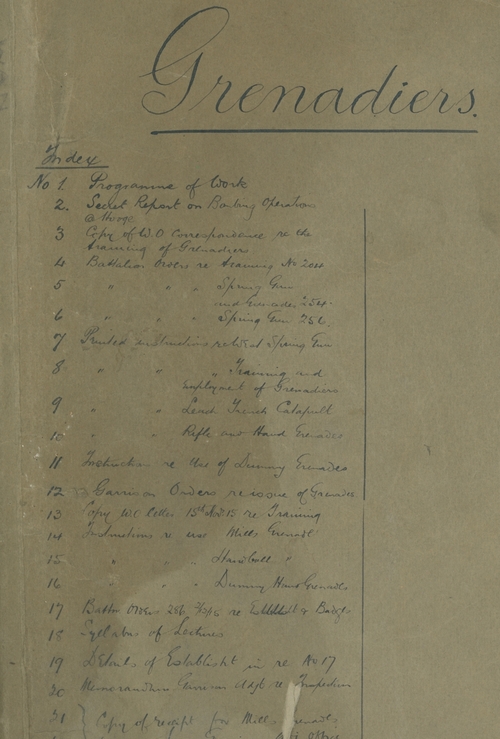 Grenadiers.
Index
No 1. Programme of Work
2. Secret Report on Bombing Operations
@ Hooge
3 Copy of W.O Correspondence re the
training of Grenadiers
4 Battalion Orders re training No 204
5 " " " Spring Gun
and Grenades 254.
6 " " " Spring Gun 256.
7 Printed instructions West Spring Gun
8 " " " Training and
Employment of Grenadiers
9 " " Leach Trench Catapult
10 " " Rifle and Hand Grenades
11 Instruction re Use of Dummy Grenades
12 Garrison Orders re issue of Grenades
13 Copy W.O letter 15 re Training
14 Instructions re use Mills Grenade
15 " " " Hairball "
16 " " " Dummy Hand Grenades
17 Battn Orders 256 re Establisht & Badges
18 Syllabus of Lectures
19 Details of Establisht in re No 17
20 Memorandum Garrison Adjt re Inspection
21 } Copy of receipt for Mills Grenades